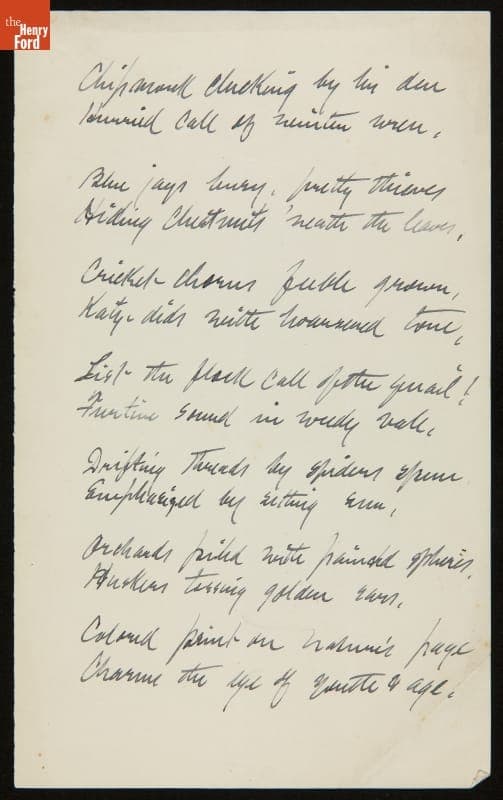 the
Henry
Ford
Chipmonk clucking by his den
Hurried call of winter wren,
Blue jays busy, pretty thieves
Hiding Chestnuts 'neath the leaves,
Cricket chorus feeble grown,
Katy-dids with hoarsened tone,
List the flock call of the quail!
Furtive sound in weedy vale,
Drifting threads by spiders spun
Emphasized by setting sun,
Orchards piled with painted spheres,
Huskers tossing golden ears,
Colored print on Nature's page
Charms the eye of youth & age.